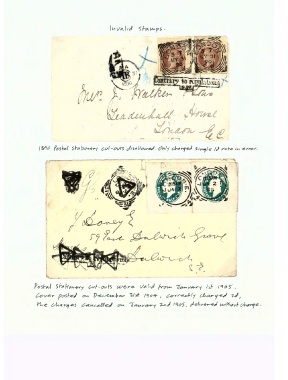 Invalid Stamps.
Contrary to regulations
Mess J. Walker & Son
Leadenhall House
London E.C.
Postal stationery cut-outs disallowed only charged single 1d rate in error.
59 East Dulwich Grove
Dulwich
S.E.
Postal stationery cut-outs were valid from January 1st 1905.
Cover posted on December 31st 1904, correctly charged 2d,
the charges cancelled on January 2nd 1905, delivered without charge.